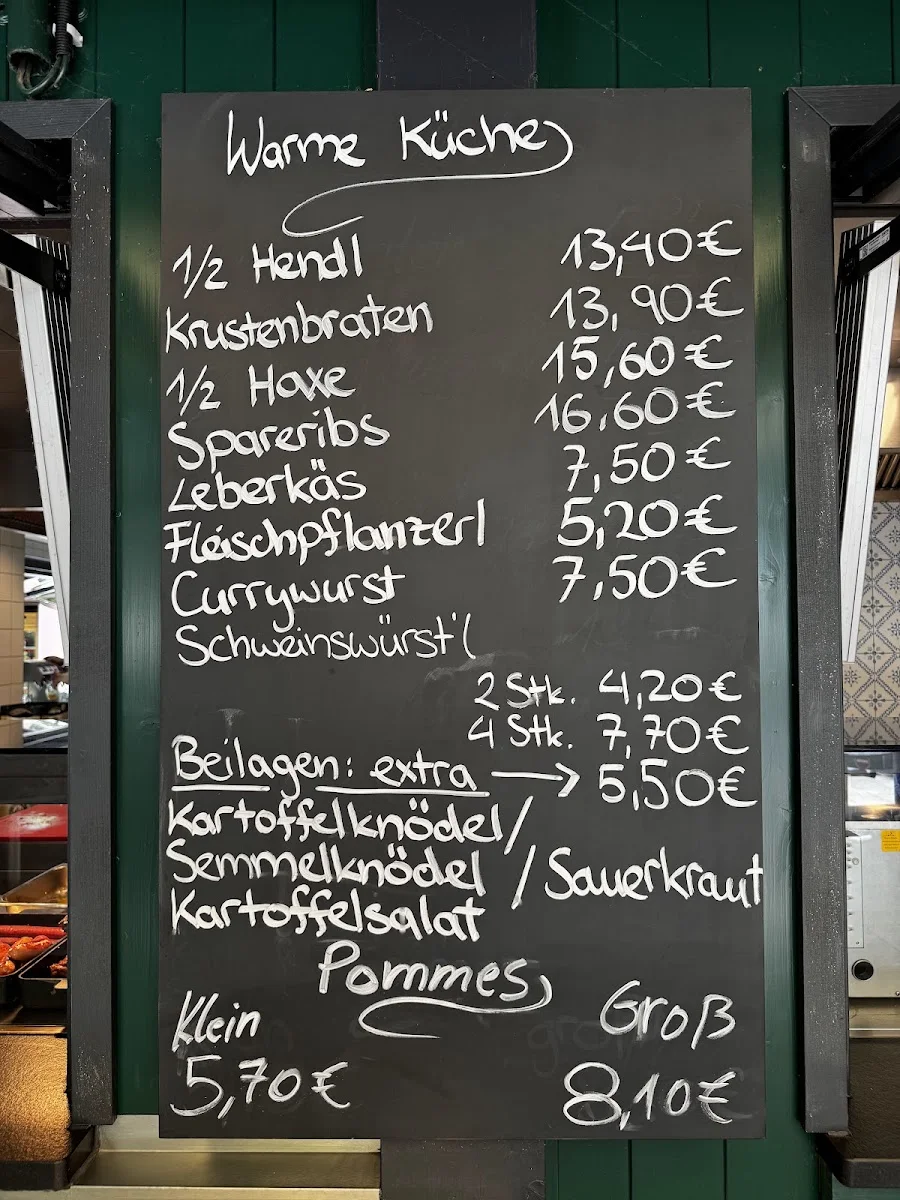 Warme Küche
1/2 Hendl 13,40€
Krustenbraten 13,90€
1/2 Haxe 15,60€
Spareribs 16,60€
Leberkäs 7,50€
Fleischpflanzerl 5,20€
Currywurst 7,50€
Schweinswürst'l
2 Stk. 4,20€
4 Stk. 7,70€
Beilagen: extra → 5,50€
Kartoffelknödel /
Semmelknödel / Sauerkraut
Kartoffelsalat
Pommes
Klein Groß
5,70€ 8,10€